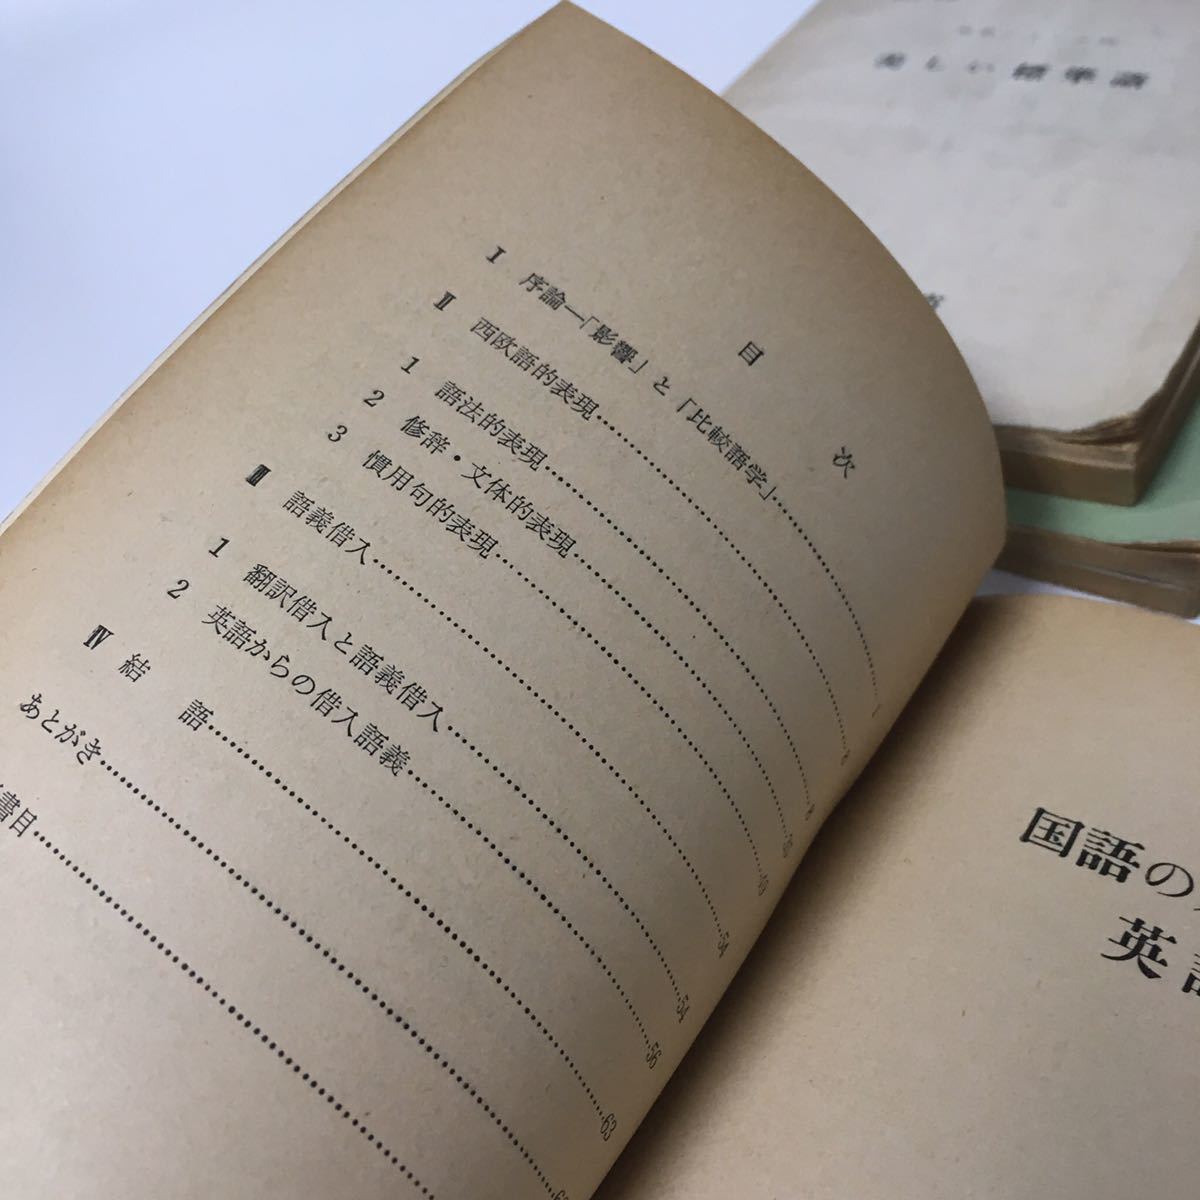 目次
I 序論—「影響」と「比較語学」……1
II 西欧語的表現……8
1 語法的表現……8
2 修辞・文体的表現……30
3 慣用句的表現……49
III 語義借入……54
1 翻訳借入と語義借入……54
2 英語からの借入語義……56
IV 結語……63
あとがき……
書目……
国語の
英語
美しい標準語